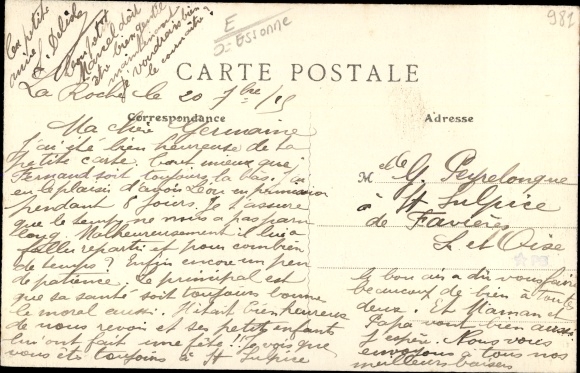 Ta petite
amie
L. Delisle
Marcel doit
être bien gentil
maintenant
je voudrais bien
le connaître ?
E
D= Essonne
981
CARTE POSTALE
La Roche le 20 7bre/15
Correspondance
Adresse
Ma chère Germaine
J'ai été bien heureuse de ta
petite carte. Tout mieux que
Fernand soit toujours là-bas. J'ai
eu le plaisir d'avoir Léon en permission
pendant 8 jours. Je t'assure
que le temps ne nous a pas paru
long. Malheureusement il lui a
fallu repartir et pour combien
de temps ? Enfin encore un peu
de patience. Le principal est
que sa santé soit toujours bonne
le moral aussi. Il était bien heureux
de nous revoir et ses petits enfants
lui ont fait une fête !! Je vois que
vous êtes toujours à St Sulpice
Melle G. Peyrelongue
à St Sulpice
de Favières
S. et Oise
Le bon air a dû vous faire
beaucoup de bien à toutes
deux. Et Maman et
Papa vont bien aussi
j'espère. Nous vous
envoyons à tous nos
meilleurs baisers